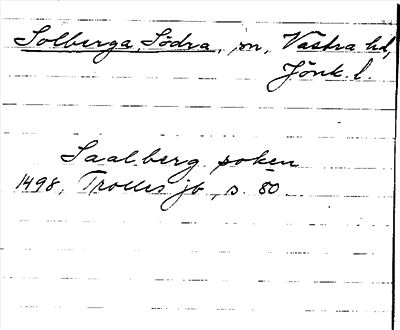 Solberga, Södra, sn, Västra hd,
Jönk. l.
Saalberg soken
1498, Trolles jb, s. 80